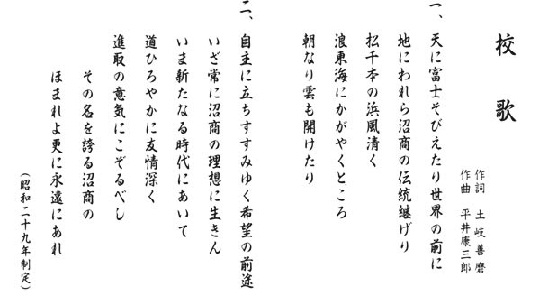 校歌
作詞 土岐善麿
作曲 平井康三郎
一、天に富士そびえたり世界の前に
地にわれら沼商の伝統継げり
松千本の浜風清く
浪東海にかがやくところ
朝なり雲も開けたり
二、自主に立ちすすみゆく希望の前途
いざ常に沼商の理想に生きん
いま新たなる時代にあいて
道ひろやかに友情深く
進取の意気にこぞるべし
その名を誇る沼商の
ほまれよ更に永遠にあれ
(昭和二十九年制定)